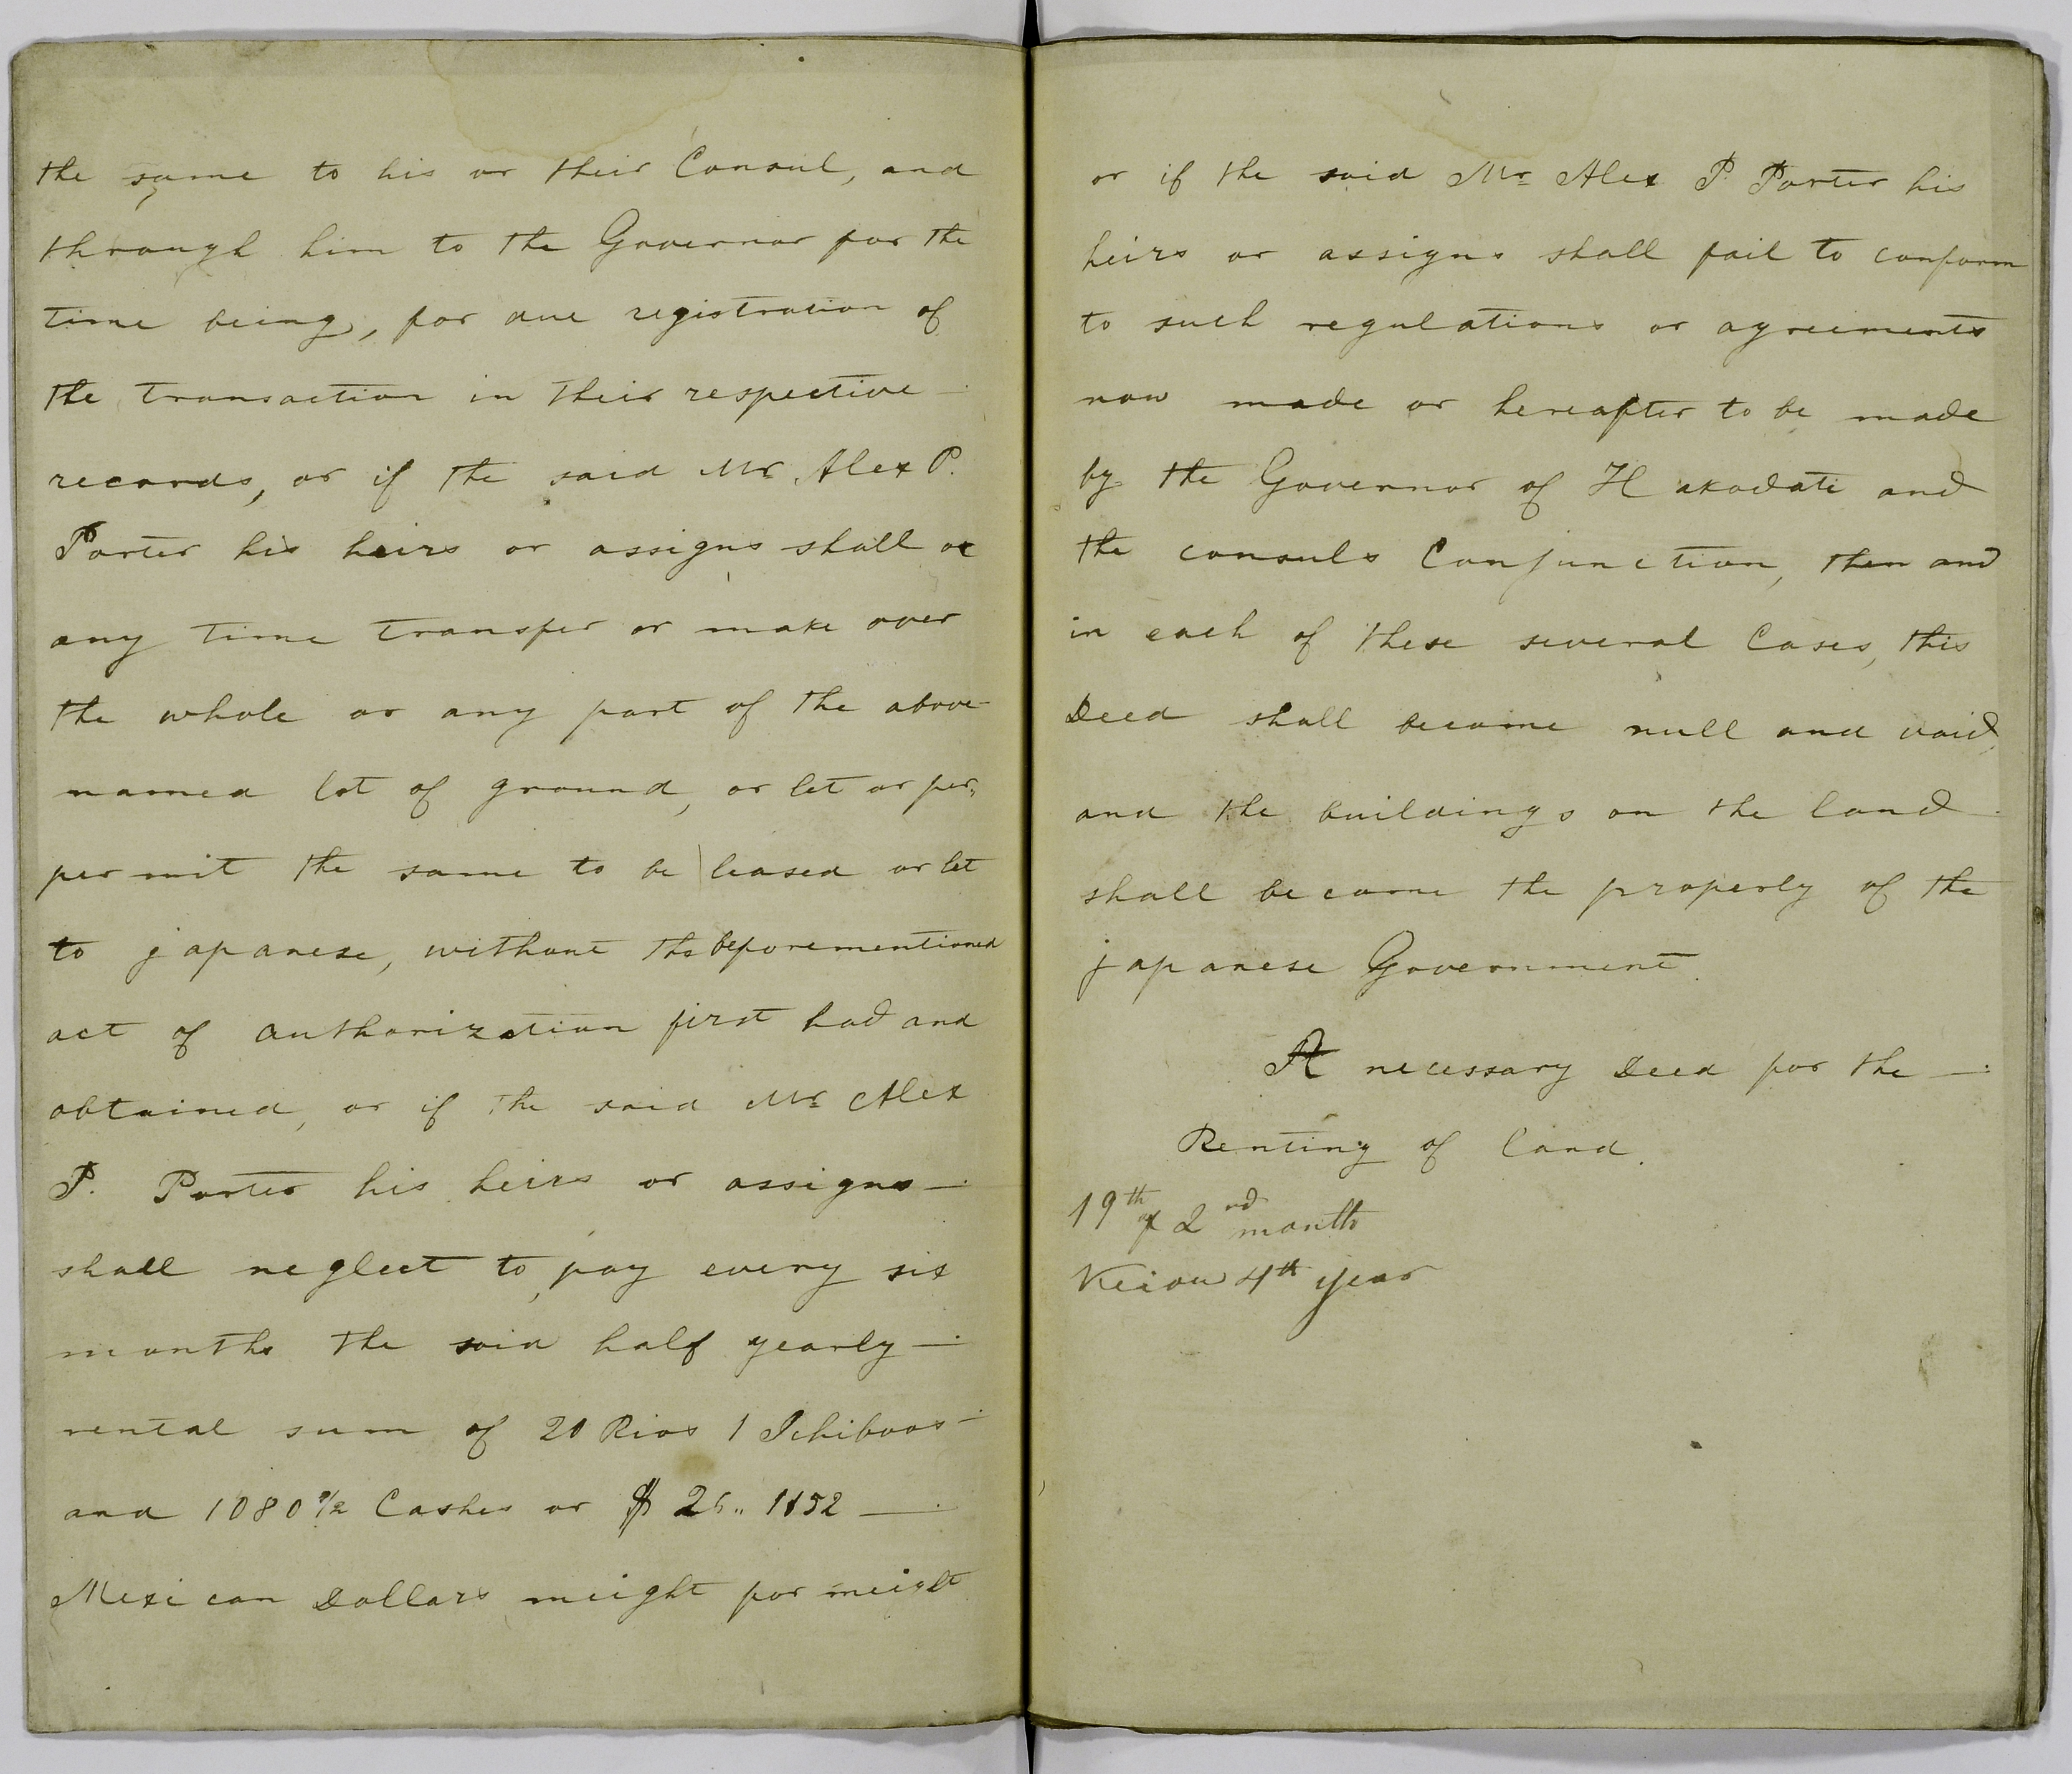 the same to his or their Consul, and
through him to the Governor for the
time being, for due registration of
the transaction in their respective
records, or if the said Mr Alex P.
Porter his heirs or assigns shall at
any time transfer or make over
the whole or any part of the above-
named lot of ground, or let or per,
permit the same to be leased or let
to japanese, without the beforementioned
act of authorization first had and
obtained, or if the said Mr Alex
P. Porter his heirs or assigns —
shall neglect to pay every six
months the said half yearly —
rental sum of 20 Rios 1 Ichiboos
and 1080 Cashes or $
Mexican Dollars meight for meight
or if the said Mr Alex P. Porter his
heirs or assigns shall fail to conform
to such regulations or agreements
now made or hereafter to be made
by the Governor of Hakodati and
the consuls Conjunction, then and
in each of these several Cases, this
Deed shall become null and void,
and the buildings on the land
shall become the property of the
japanese Government.
A necessary Deed for the —
Renting of land.
19th of 2nd month
Keiou 4th year